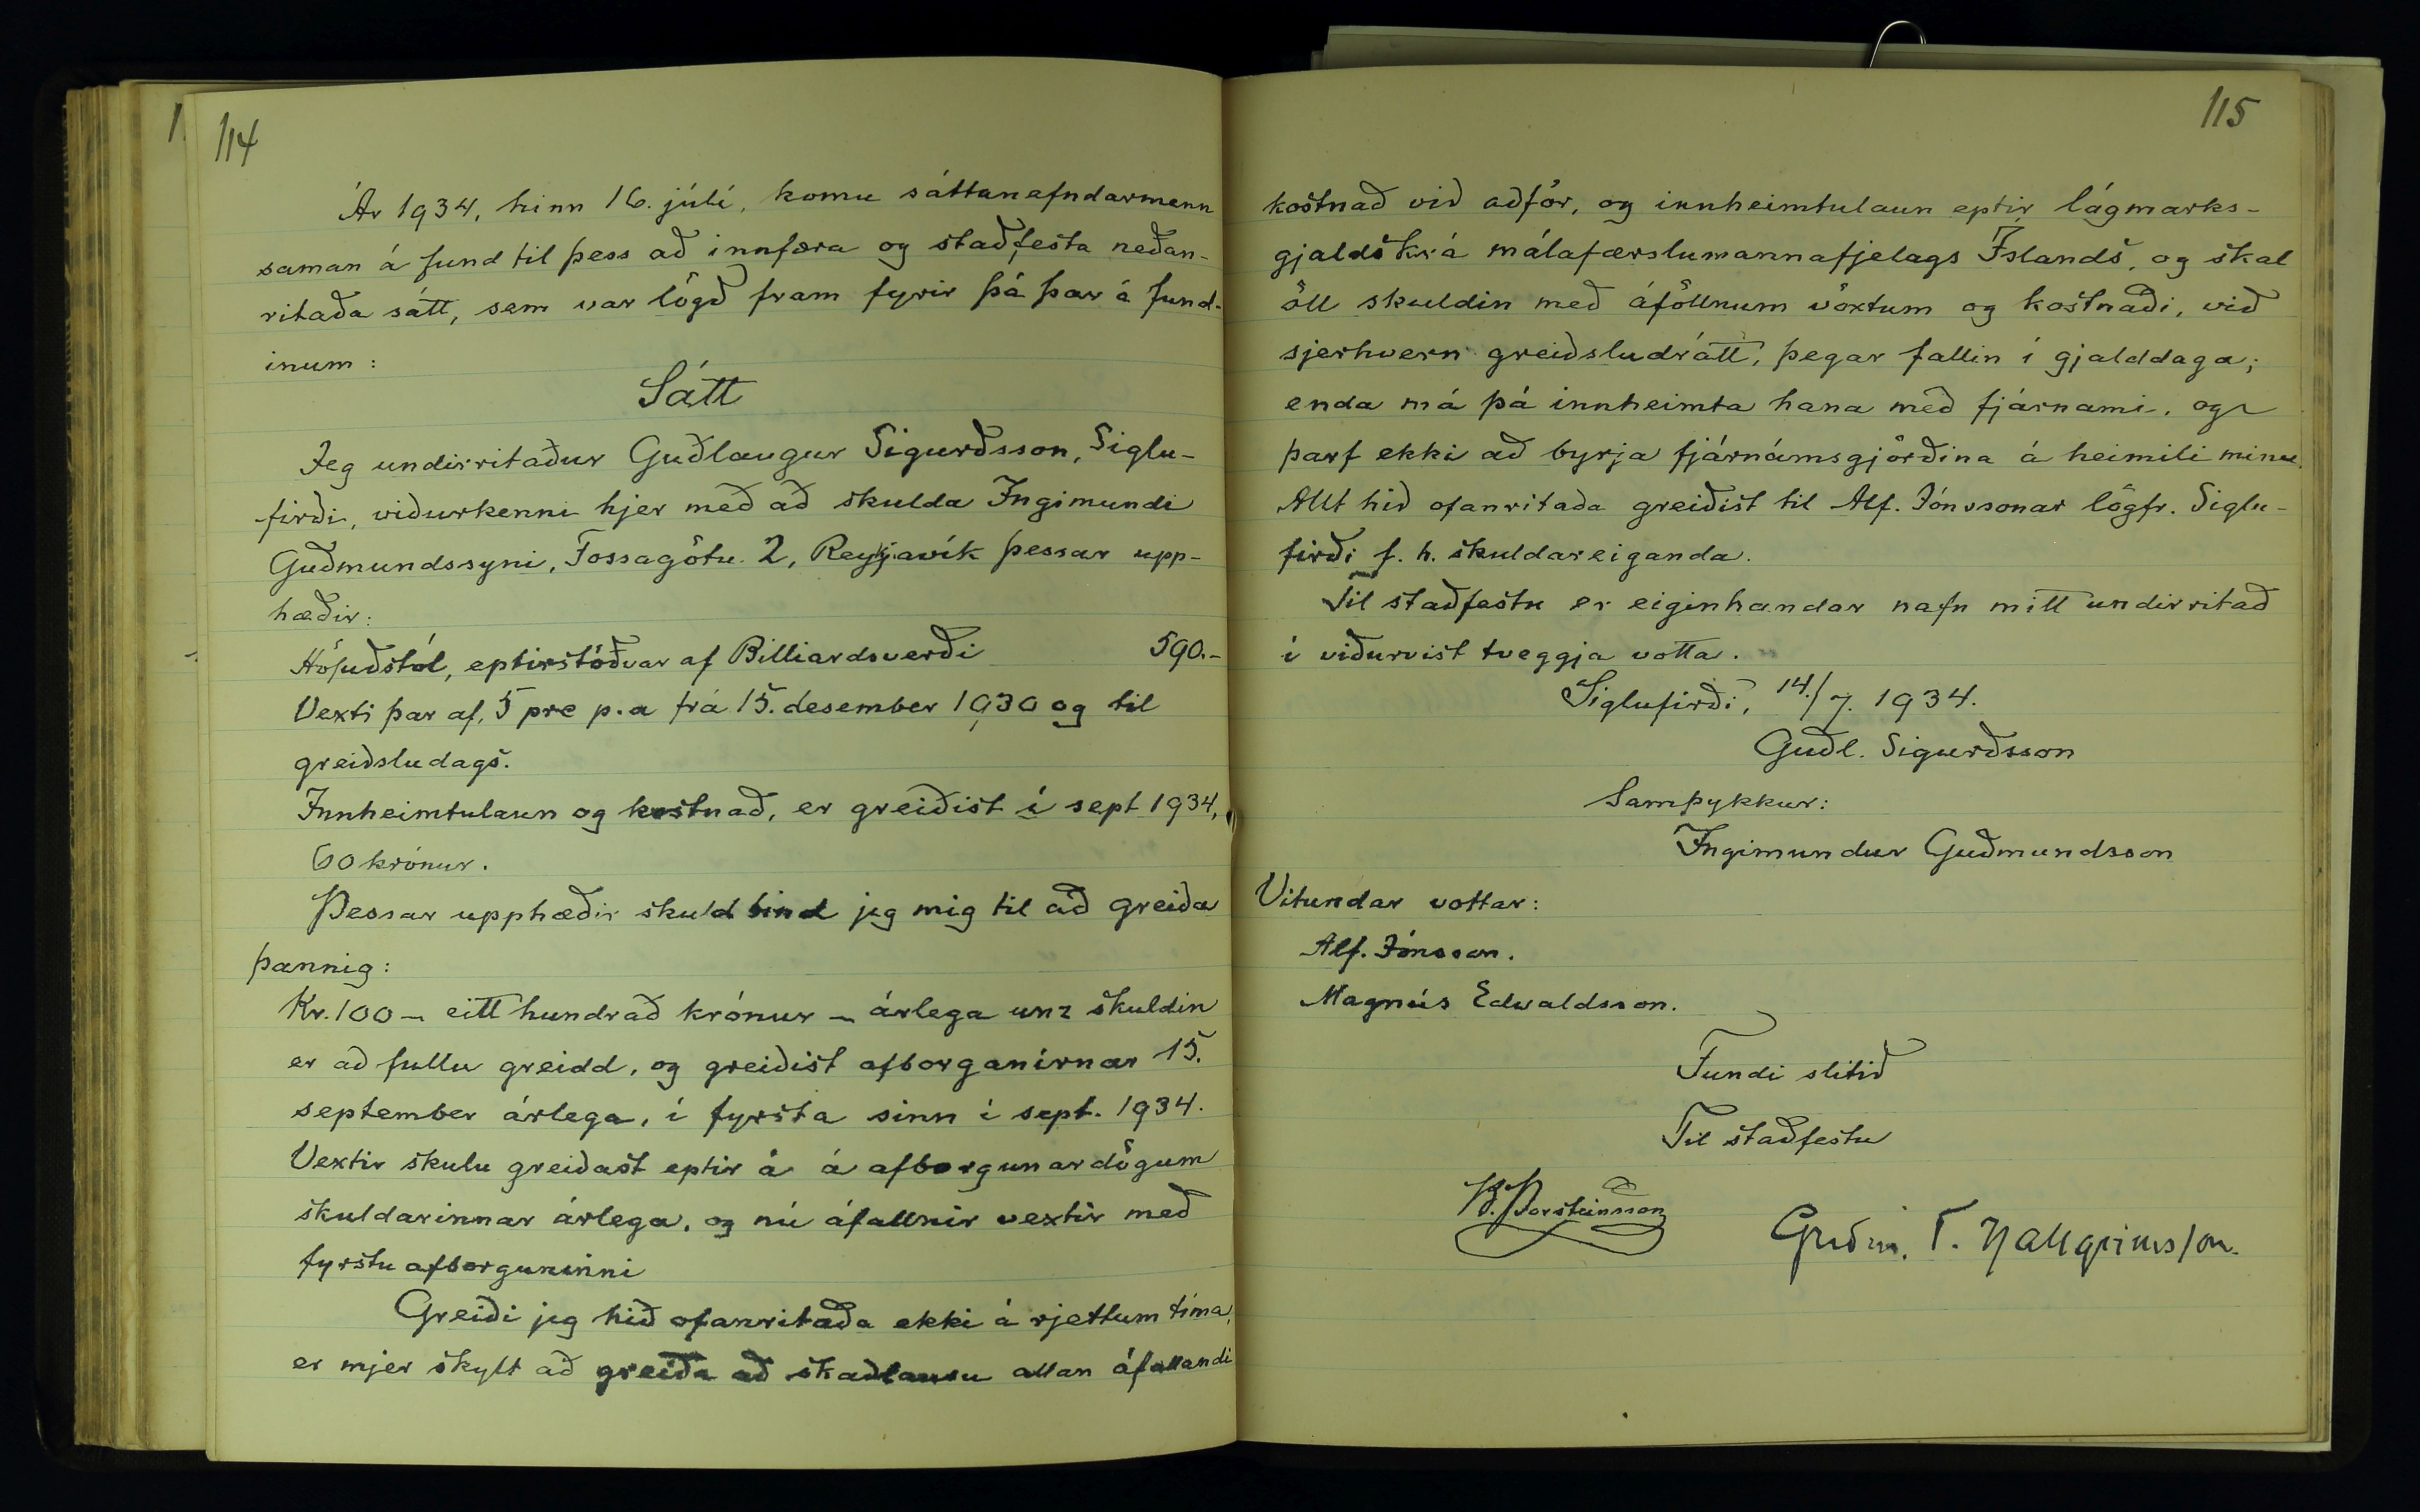 114
Ár 1934, hinn 16. júlí, komu sáttanefndarmenn
saman á fund til þess að innfæra og staðfesta neðan-
ritaða sátt, sem var lögð fram fyrir þá þar á fund-
inum:
Sátt
Jeg undirritaður Guðlaugur Sigurðsson, Siglu-
firði, viðurkenni hjer með að skulda Ingimundi
Guðmundssyni, Fossagötu 2, Reykjavík þessar upp-
hæðir:
Höfuðstól, eptirstöðvar af Billiardsverði 590.-
Vexti þar af, 5 pre p.a frá 15. desember 1930 og til
greiðsludags.
Innheimtulaun og kostnað, er greiðist í sept 1934,
60 krónur.
Þessar upphæðir skuldbind jeg mig til að greiða
þannig:
Kr. 100 - eitt hundrað krónur - árlega unz skuldin
er að fullu greidd, og greiðist afborganirnar 15.
september árlega, í fyrsta sinn í sept. 1934.
Vextir skulu greiðast eptir á á afborgunardögum
skuldarinnar árlega, og nú áfallnir vextir með
fyrstu afborguninni
Greiði jeg hið ofanritaða ekki á rjettum tíma,
er mjer skylt að greiða að skaðlausu allan áfallandi
115
kostnað við aðför, og innheimtulaun eptir lágmarks-
gjaldskrá málafærslumannafjelags Íslands, og skal
öll skuldin með áföllnum vöxtum og kostnaði, við
sjerhvern greiðsludrátt, þegar fallin í gjalddaga;
enda má þá innheimta hana með fjárnámi, og
þarf ekki að byrja fjárnámsgjörðina á heimili mínu.
Allt hið ofanritaða greiðist til Alf. Jónssonar lögfr. Siglu-
firði f. h. skuldareiganda.
Til staðfestu er eiginhandar nafn mitt undirritað
í viðurvist tveggja votta.
Siglufirði, 14./7. 1934.
Guðl. Sigurðsson
Samþykkur:
Ingimundur Guðmundsson
Vitundar vottar:
Alf. Jónsson.
Magnús Edvaldsson.
Fundi slitið
Til staðfestu
B. Þorsteinsson
Guðm. T. Hallgrímsson.